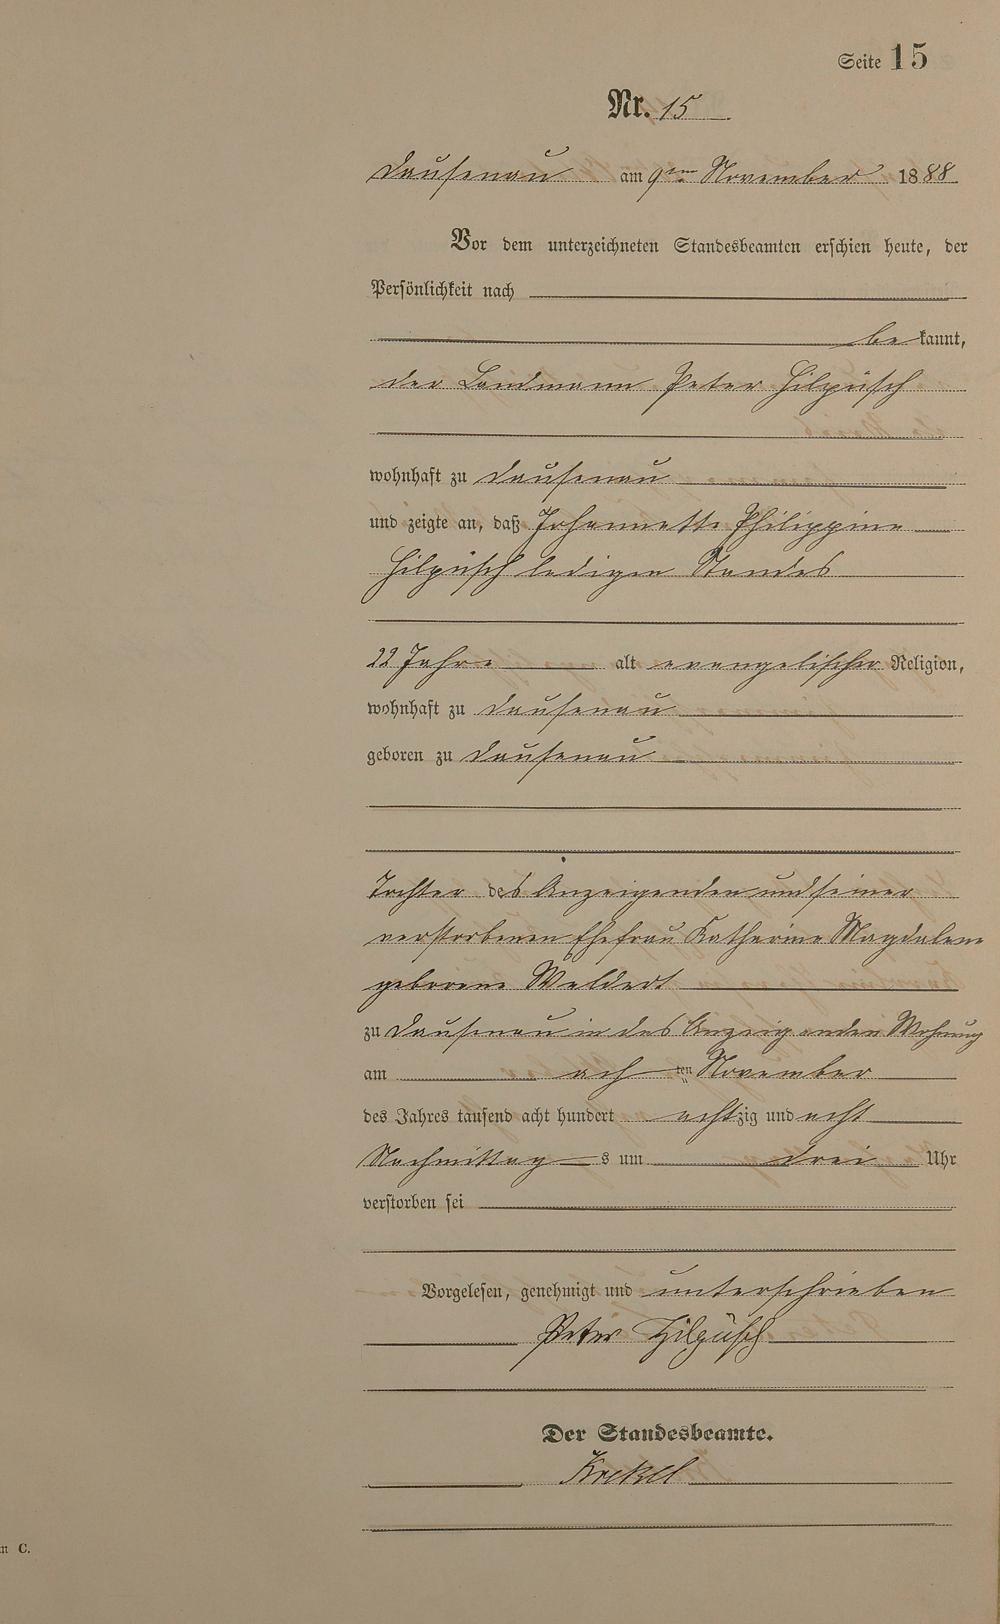 Seite 15
Nr. 15
Dausenau am 9ten November 1888
Vor dem unterzeichneten Standesbeamten erschien heute, der
Persönlichkeit nach
be kannt,
der Landmann Peter Hilpüsch
wohnhaft zu Dausenau
und zeigte an, daß Johannette Philippine
Hilpüsch ledigen Standes
22 Jahre alt evangelischer Religion,
wohnhaft zu Dausenau
geboren zu Dausenau
Tochter des Anzeigenden und seiner
verstorbenen Ehefrau Katharina Magdalena
geborene Weldert
zu Dausenau in des Anzeigenden Wohnung
am ach ten November
des Jahres tausend acht hundert achtzig und acht
Nachmittag s um drei Uhr
verstorben sei
Vorgelesen, genehmigt und unterschrieben
Peter Hilpüsch
Der Standesbeamte.
Krekel
n C.